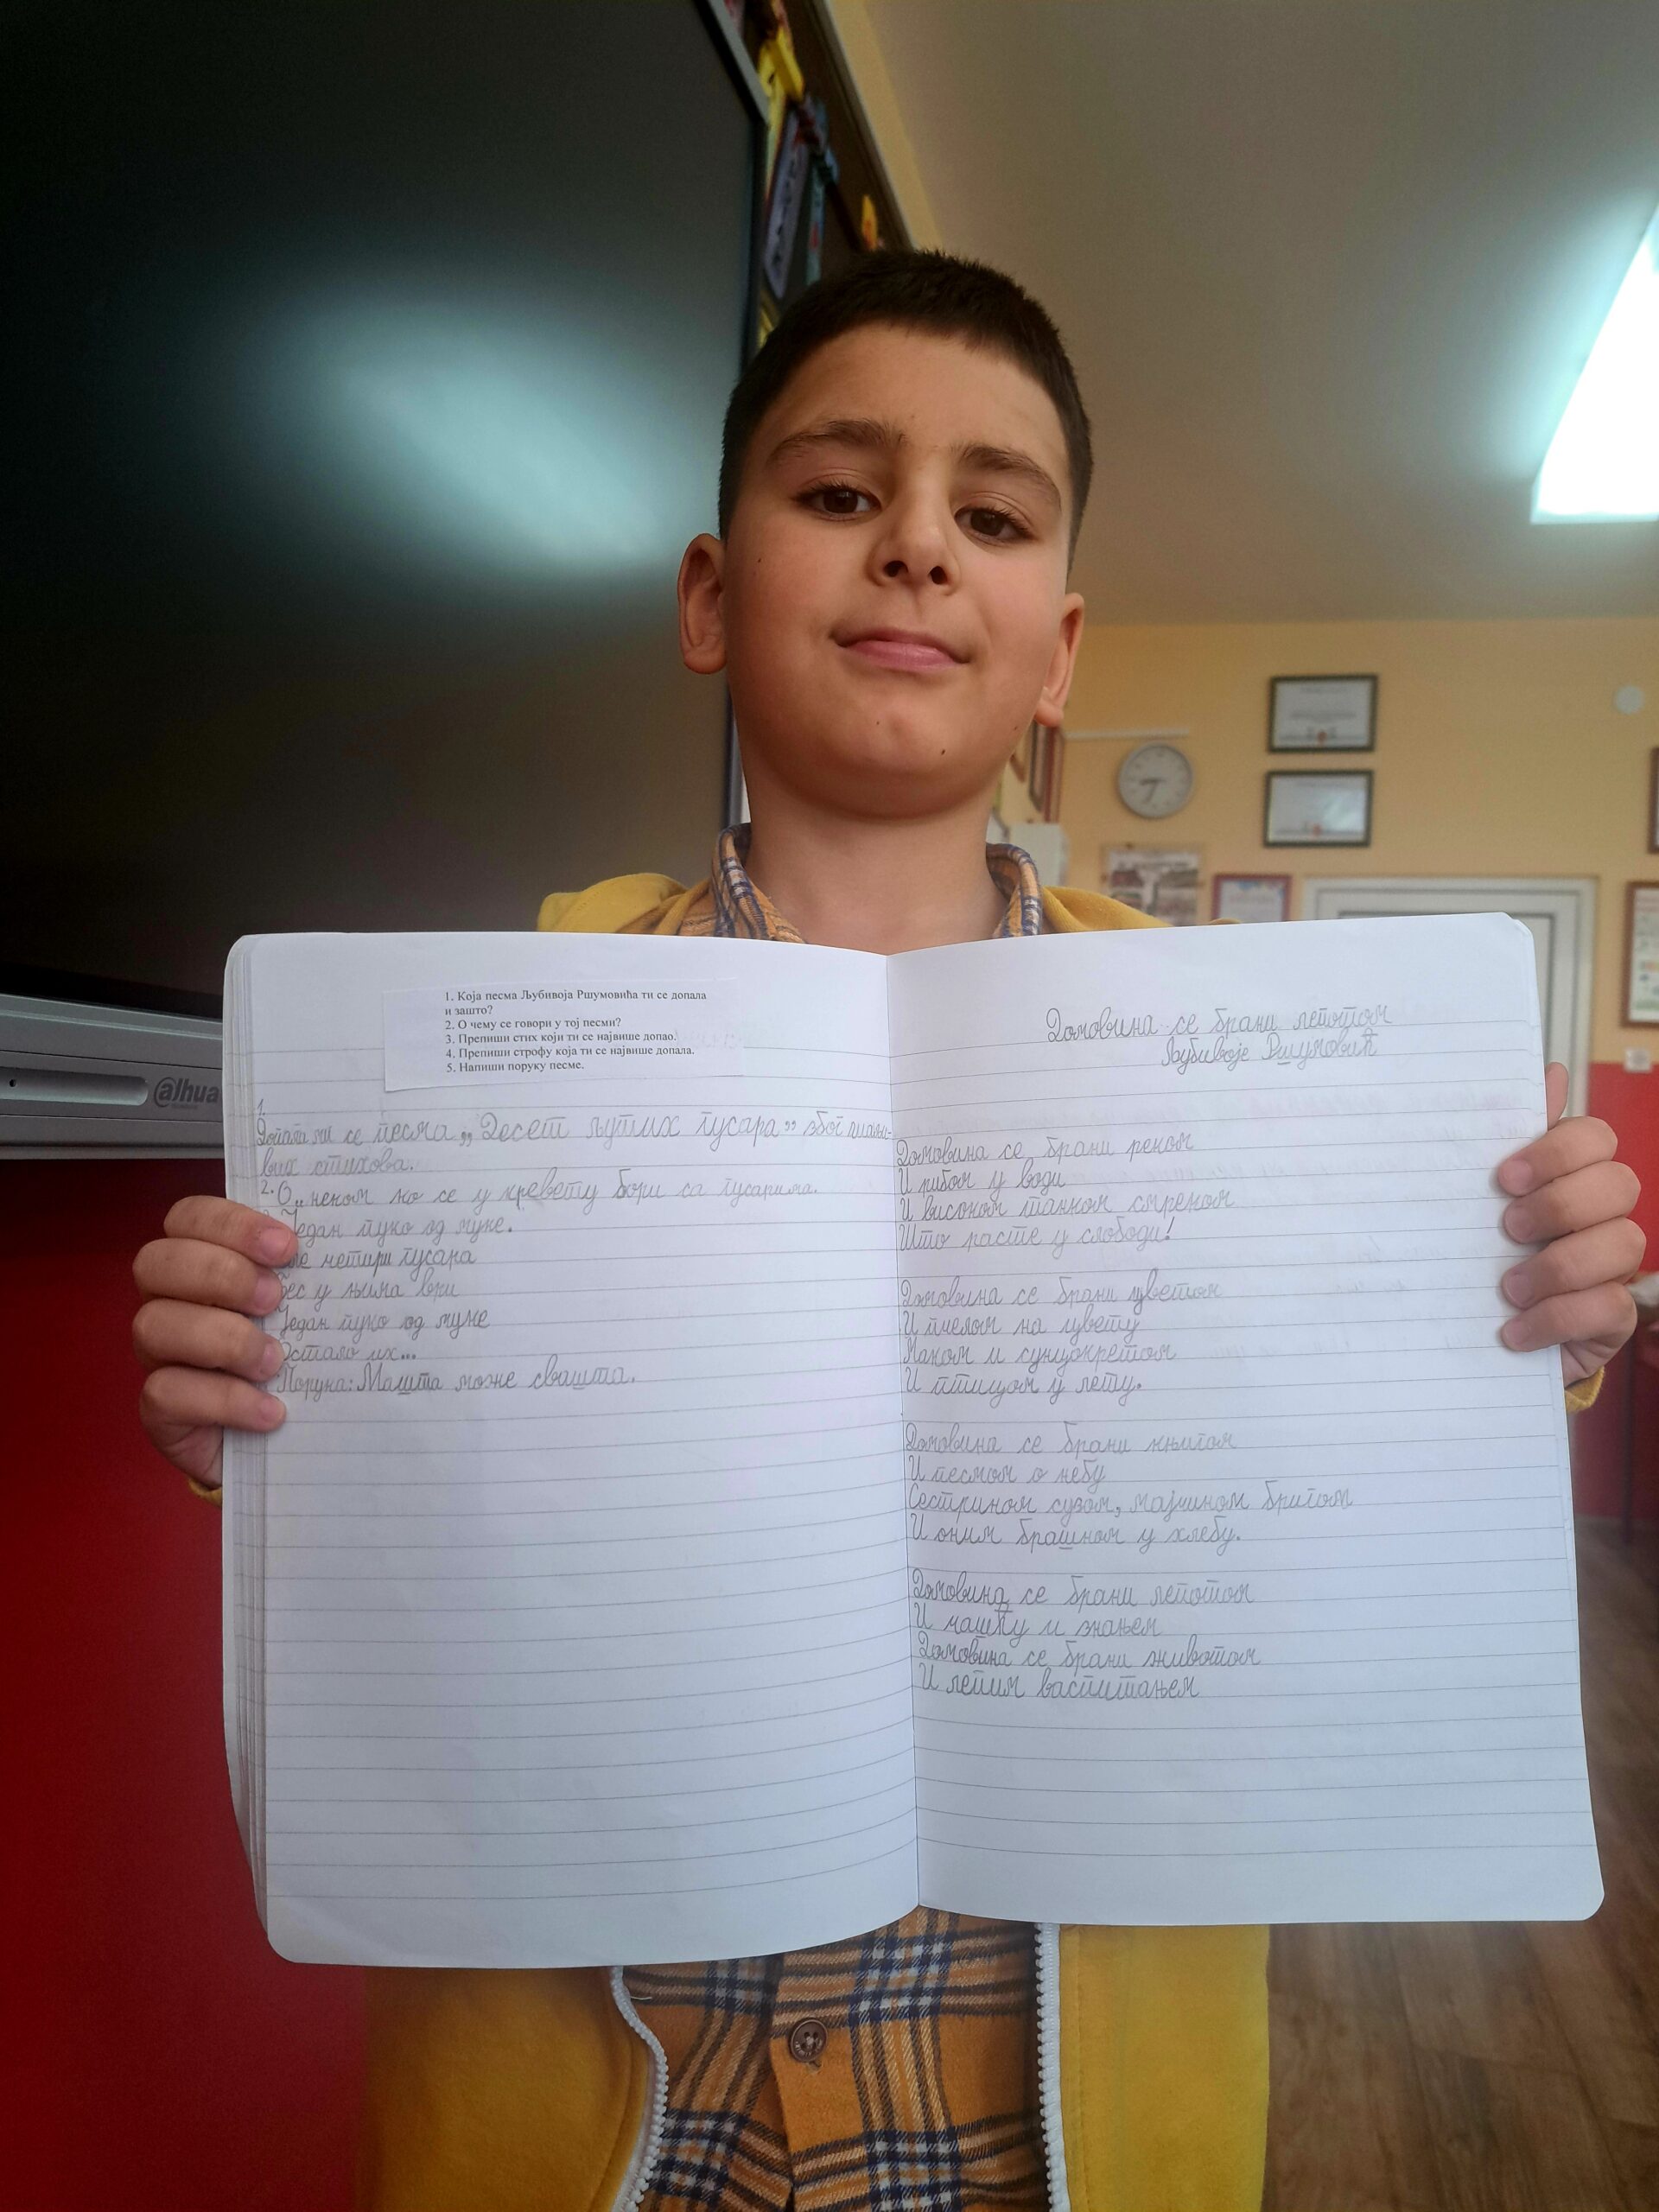 1. Која песма Љубивоја Ршумовића ти се допала
и зашто?
2. О чему се говори у тој песми?
3. Препиши стих који ти се највише допао.
4. Препиши строфу која ти се највише допала.
5. Напиши поруку песме.
alhua
1.
Допала ми се песма „Десет љутих гусара” због
вих стихова.
2. О неком ко се у кревету бори са гусарима.
Један пуко од муке.
четири гусара
Бес у њима ври
Један пуко од муке
Остало их...
Порука: Машта може свашта.
Домовина се брани лепотом
Љубивоје Ршумовић
Домовина се брани реком
И рибом у води
И високом танком смреком
Што расте у слободи!
Домовина се брани цветом
И пчелом на цвету
Маком и сунцокретом
И птицом у лету.
Домовина се брани књигом
И песмом о небу
Сестрином сузом, мајчином бригом
И оним брашном у хлебу.
Домовина се брани лепотом
И чашћу и знањем
Домовина се брани животом
И лепим васпитањем